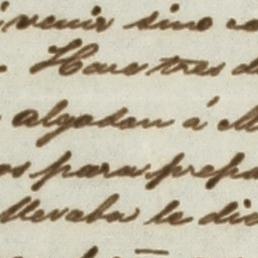 venir sino
Hace tres d
algodon á M
os para prepa
llevaba le di